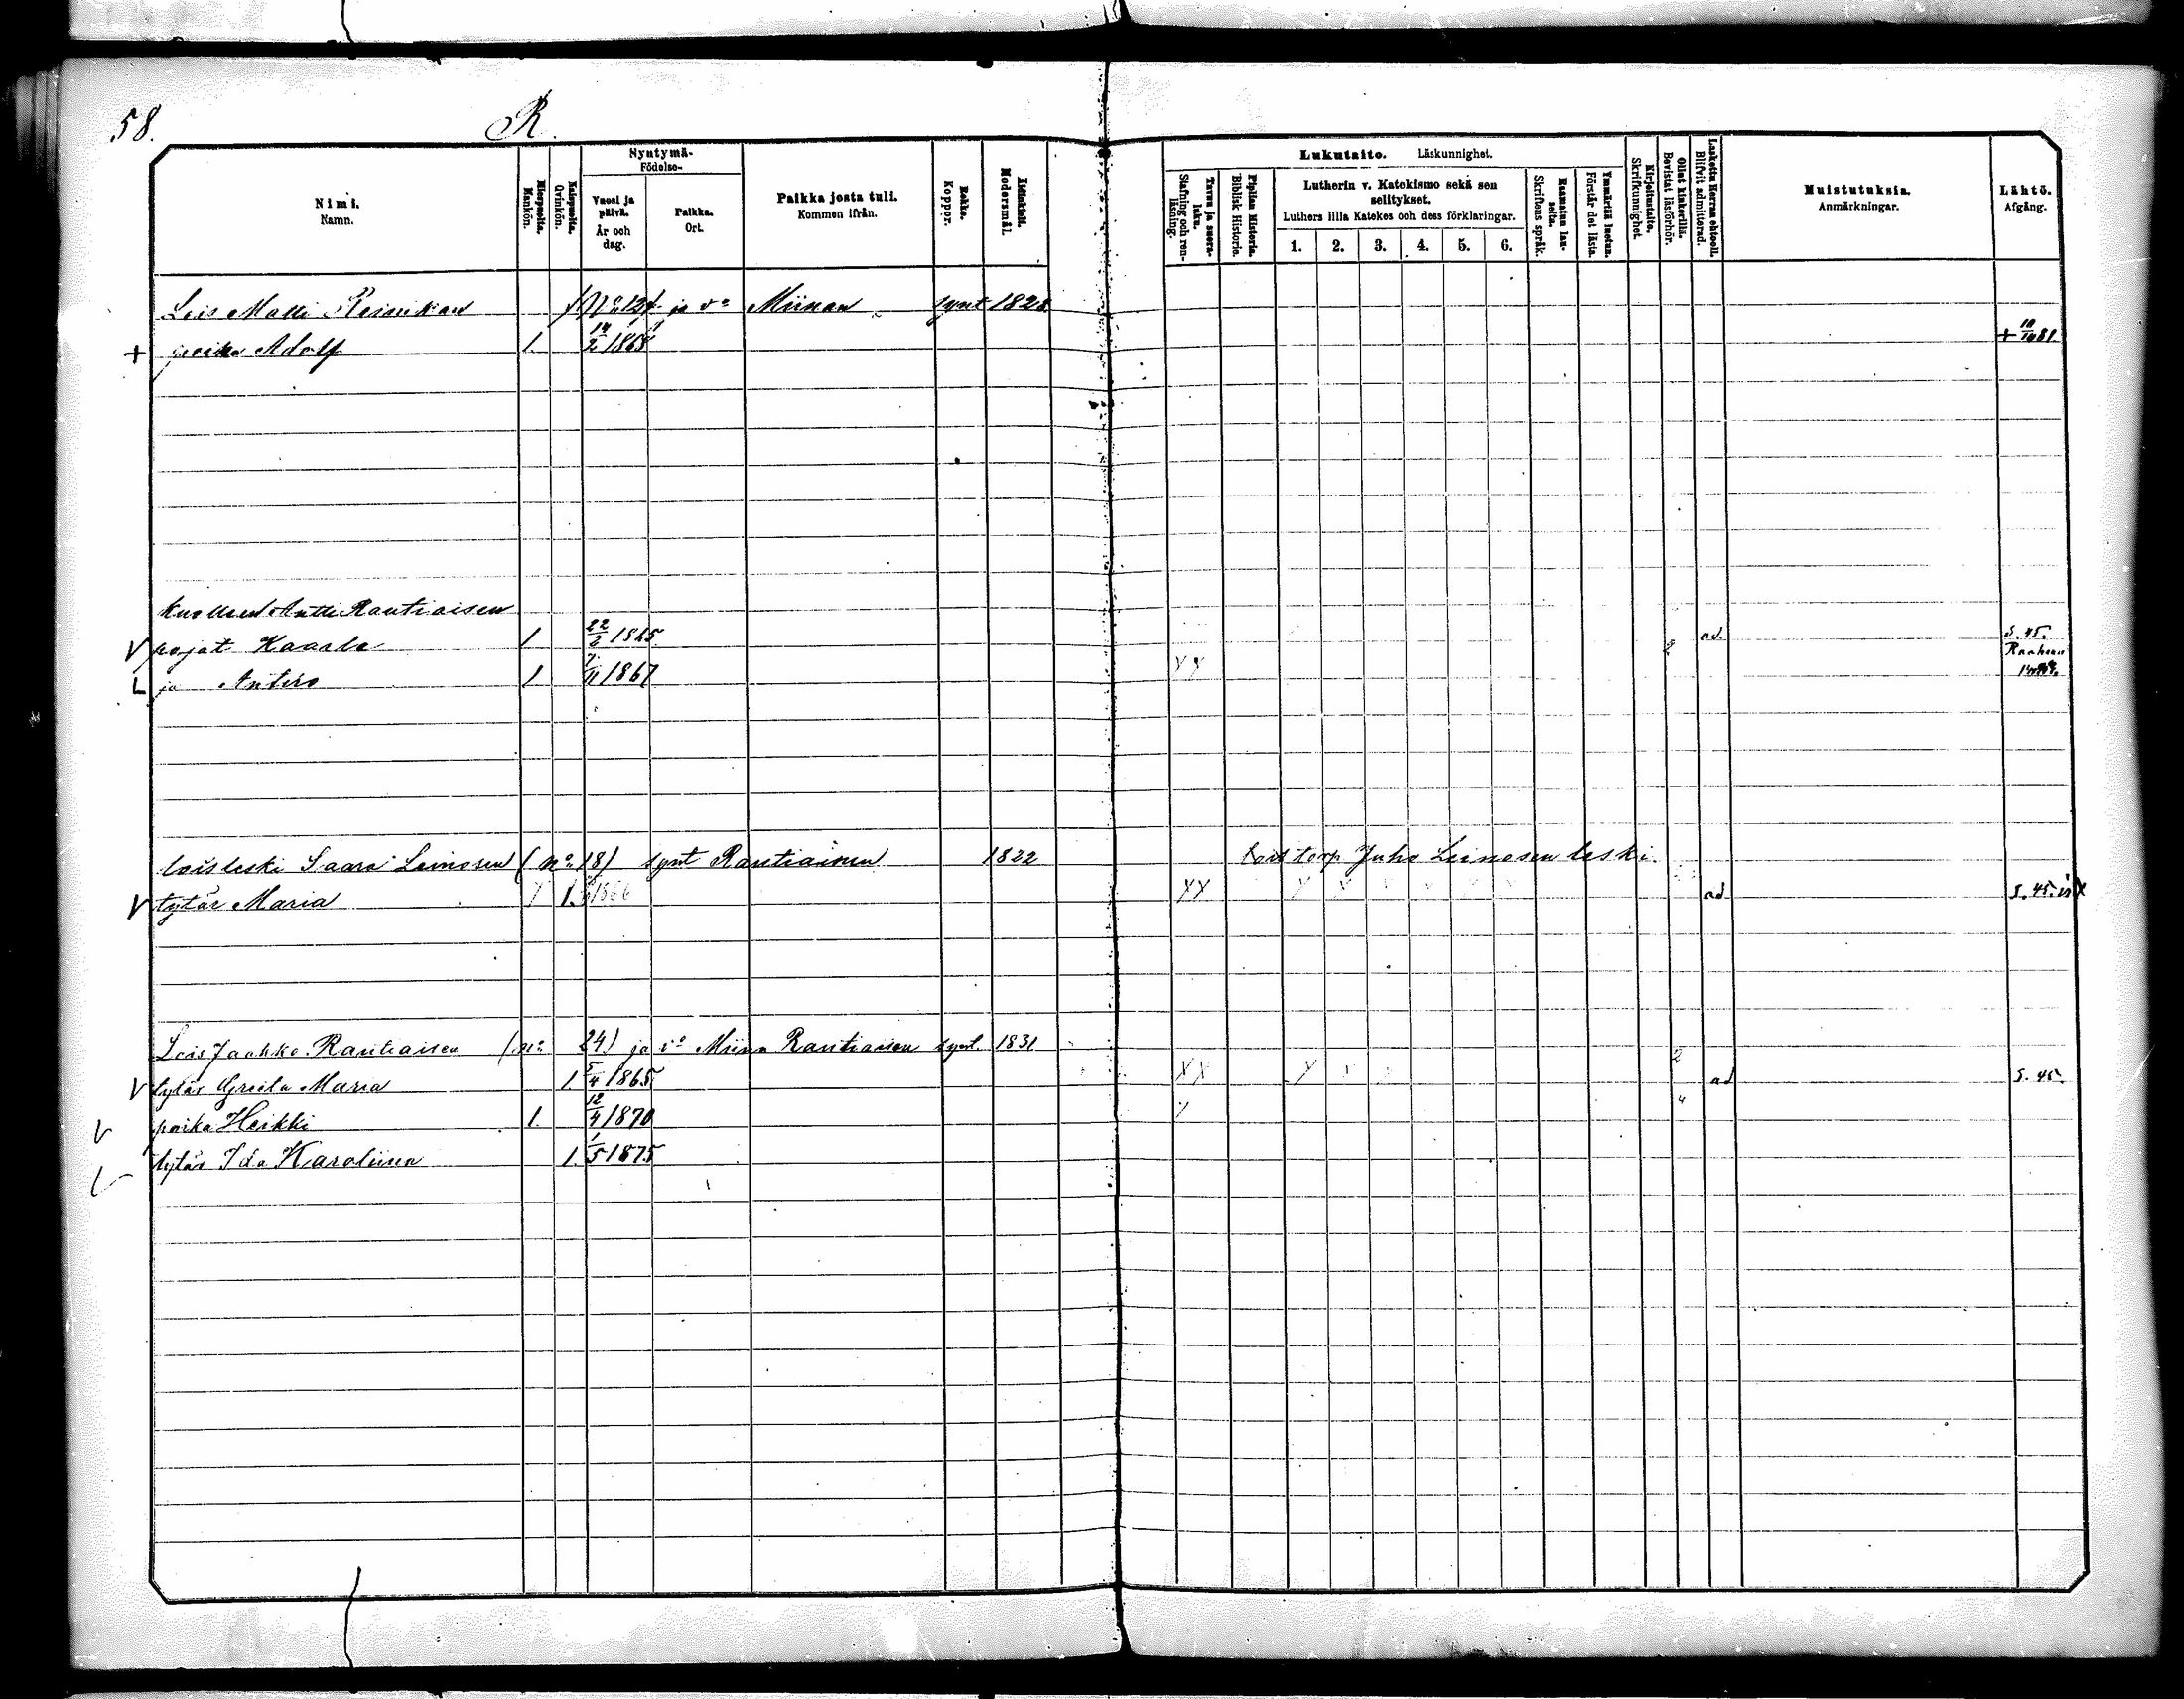 58. R.
Nimi. Namn.
Miespuolia. Mankön.
Naispuolia. Qvinkön.
Syntymä- Födelse-
Vuosi ja päivä. År och dag.
Paikka. Ort.
Paikka josta tuli. Kommen ifrån.
Rokko. Koppor.
Äidinkieli. Modersmål.
Lukutaito. Läskunnighet.
Tavuu ja suora-luku. Stafning och ren-läsning.
Piplian Historia. Biblisk Historie.
Lutherin v. Katekismo sekä sen selitykset.
Luthers lilla Katekes och dess förklaringar.
1. 2. 3. 4. 5. 6.
Raamatun lau-seita. Skriftens språk.
Ymmärtää luetun. Förstår det lästa.
Kirjoitustaito. Skrifkunnighet.
Ollut kinkerillä. Bevistat läsförhör.
Laskettu Herran ehtooll. Blifvit admitterad.
Muistutuksia. Anmärkningar.
Lähtö. Afgång.
Lois Matti Reinikan (No 124 ja vo Miinan synt 1828
+ poika Adolf 1. 14/2 1868 + 10/10 81
Kuolleen Antti Rautiaisen
V pojat Kaarlo 1 22/2 1865 2 ad. S. 45.
L ja Antero 1 7/11 1867 XX Raaheen
lois leski Saara Leinosen (no 18) synt Rautiainen 1822 lois torp Juho Leinosen leski.
V tytär Maria 1. 1866 XX X ad S. 45.
Lois Jaakko Rautiaisen (no 24) ja vo Miina Rautiainen synt. 1831
V tytär Greeta Maria 1 5/4 1865 XX X 2 ad S. 45.
V poika Heikki 1. 12/4 1870
V tytär Ida Karoliina 1. 1/5 1875